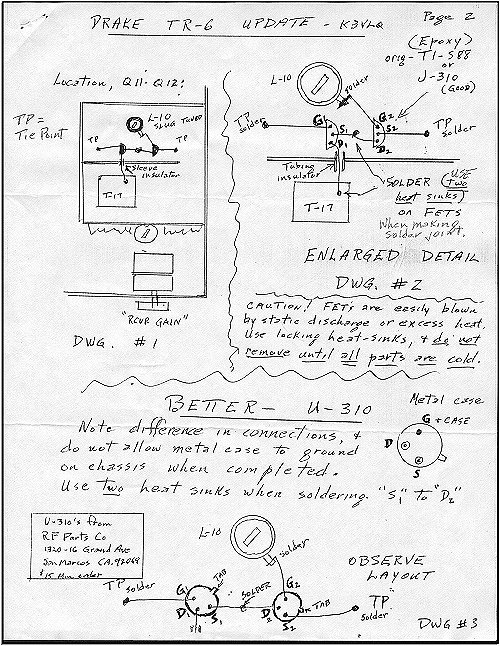 DRAKE TR-6 UPDATE - K3VLQ
Page 2
Location, Q11-Q12:
TP =
Tie Point
L-10
SLUG TUNED
TP
TP
Sleeve
insulator
T-17
"RCVR GAIN"
DWG. #1
(Epoxy)
orig - TI-S88
or
J-310
(GOOD)
L-10
solder
TP
solder
G1
S1
D1
G2
S2
D2
TP
solder
Tubing
insulator
T-17
SOLDER (USE
TWO
heat sinks)
on FETS
When making
solder joint.
ENLARGED DETAIL
DWG. #2
CAUTION! FETs are easily blown
by static discharge or excess heat.
Use locking heat-sinks, & do not
remove until all parts are cold.
BETTER - U-310
Note difference in connections, &
do not allow metal case to ground
on chassis when completed.
Use Two heat sinks when soldering "S1" To "D2"
Metal case
G + CASE
D
S
U-310's from
RF Parts Co
1320-16 Grand Ave
San Marcos CA. 92069
$15 Min order
L-10
solder
OBSERVE
LAYOUT
TP
solder
G1
TAB
D1
S1
SOLDER
G2
D2
S2
TAB
TP
solder
DWG #3